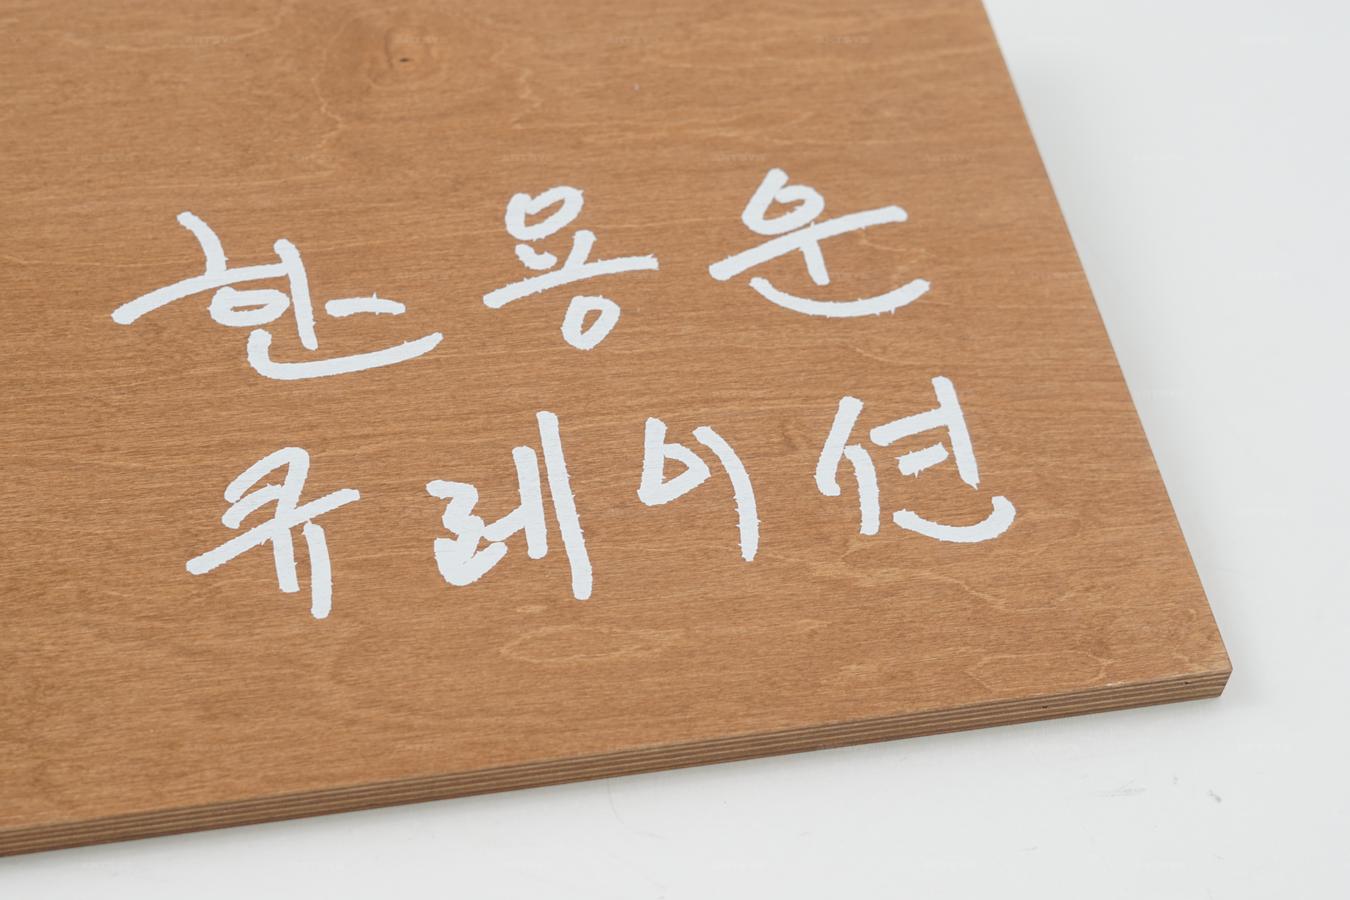 한용운
큐레이션